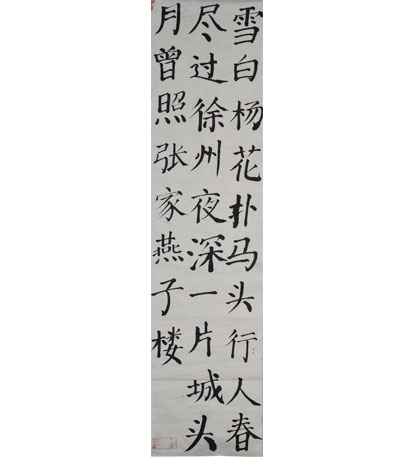 雪白杨花扑马头行人春
尽过徐州夜深一片城头
月曾照张家燕子楼